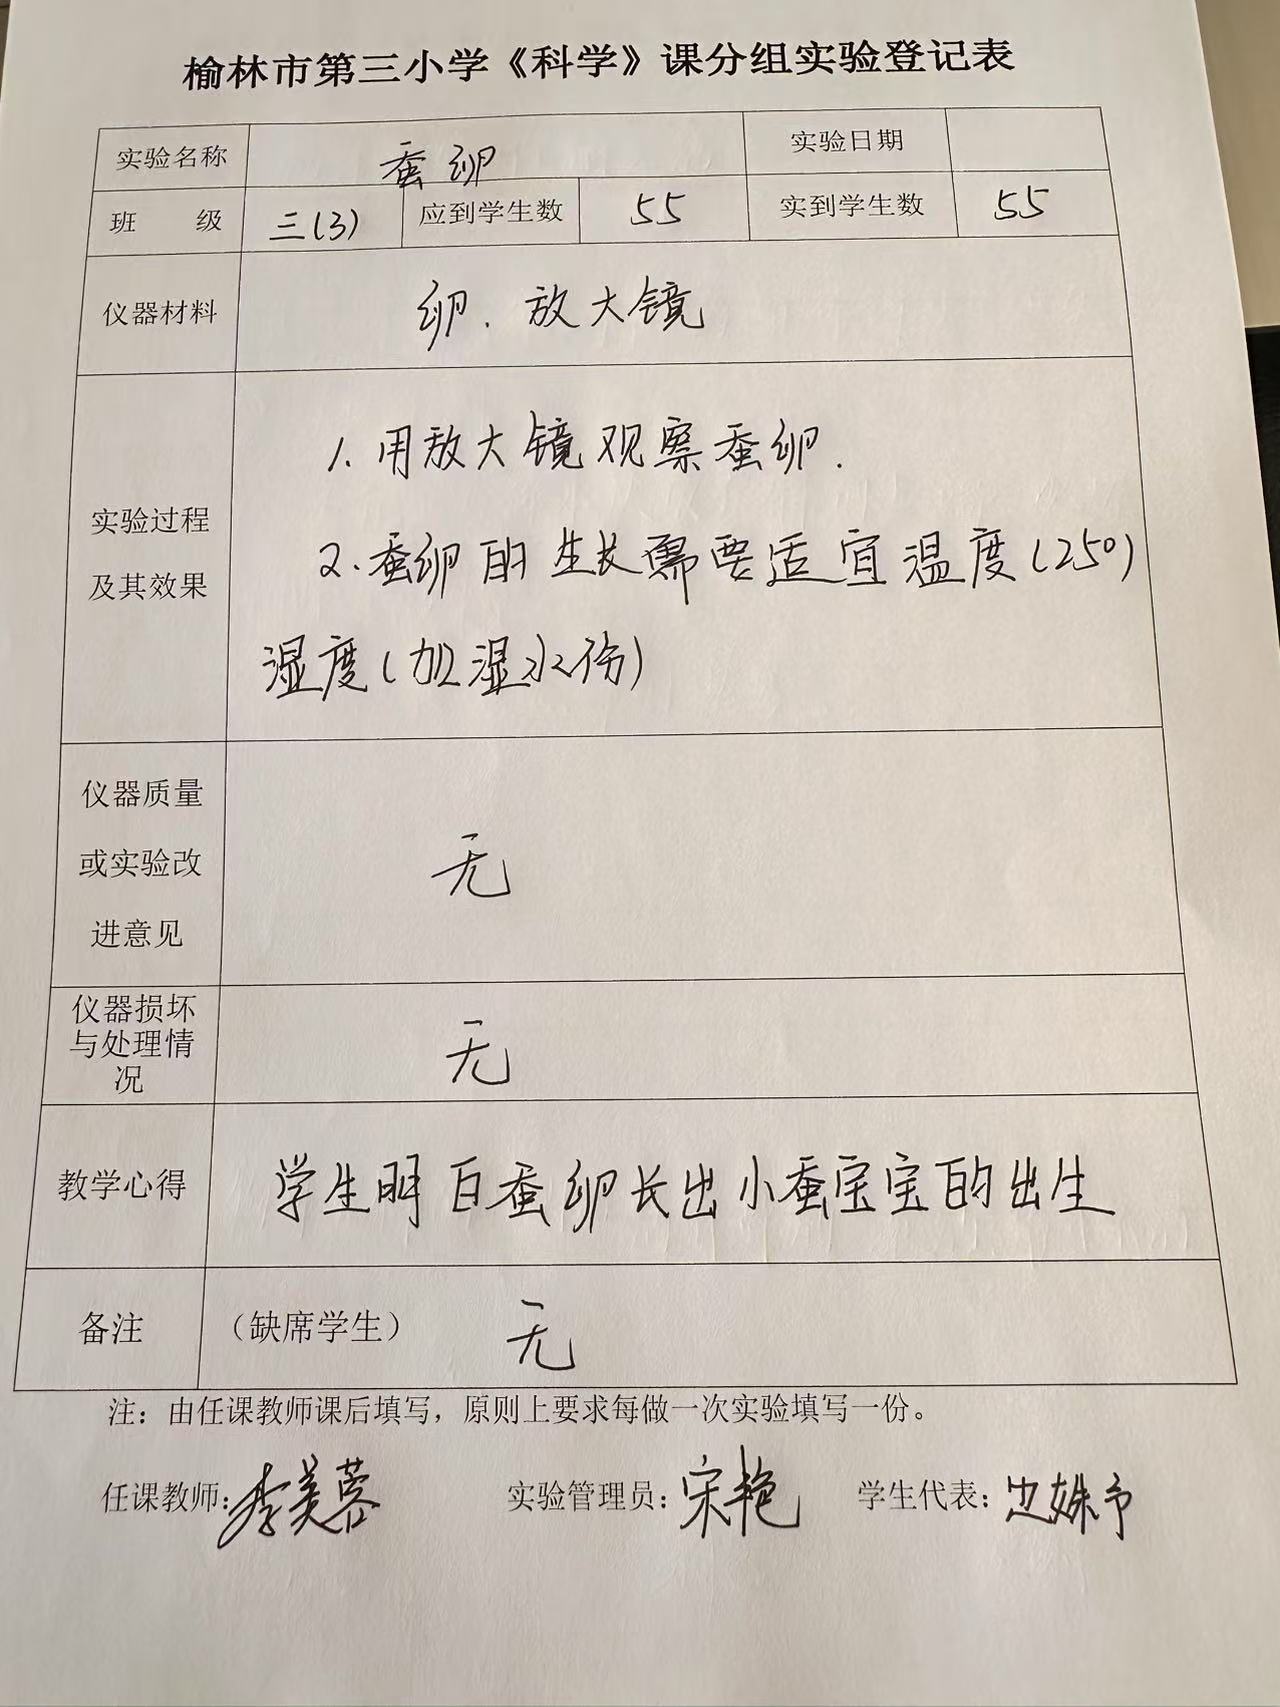 榆林市第三小学《科学》课分组实验登记表
实验名称 蚕卵 实验日期
班 级 三(3) 应到学生数 55 实到学生数 55
仪器材料 卵、放大镜
实验过程
及其效果
1. 用放大镜观察蚕卵.
2. 蚕卵的生长需要适宜温度(25°)
湿度(加湿水份)
仪器质量
或实验改
进意见
无
仪器损坏
与处理情
况
无
教学心得 学生明白蚕卵长出小蚕宝宝的出生
备注 (缺席学生) 无
注：由任课教师课后填写，原则上要求每做一次实验填写一份。
任课教师: 李美蓉 实验管理员: 宋艳 学生代表: 边姝予